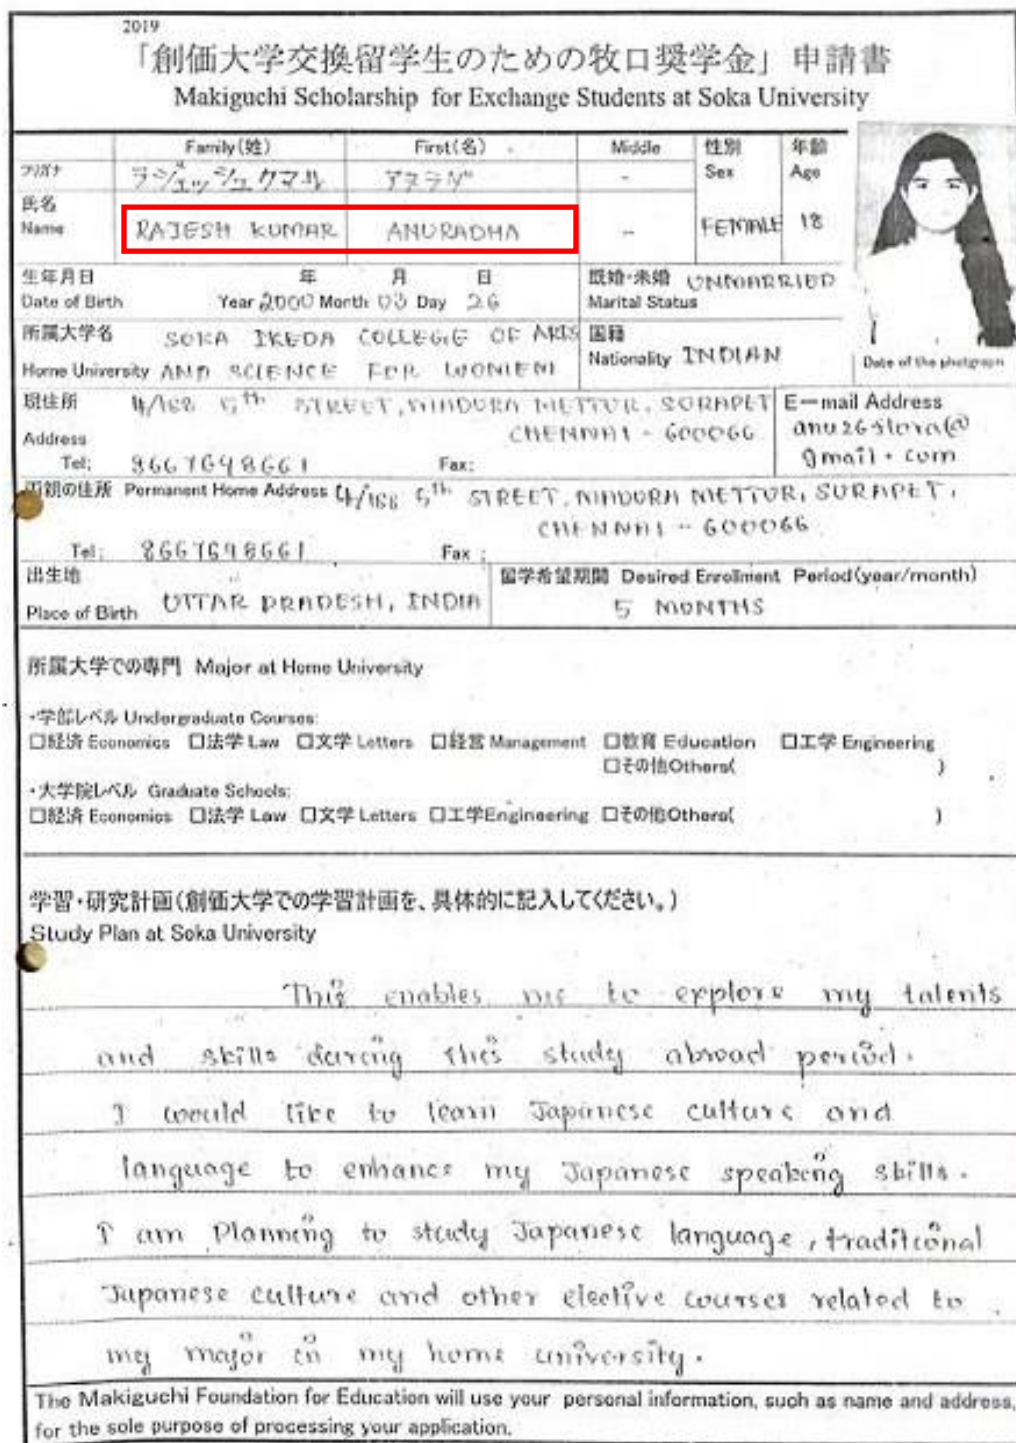 2019
「創価大学交換留学生のための牧口奨学金」申請書
Makiguchi Scholarship for Exchange Students at Soka University
Family(姓) First(名) Middle 性別 年齢
フリガナ ラジェッシュクマル アヌラダ - Sex Age
氏名
Name RAJESH KUMAR ANURADHA - FEMALE 18
生年月日 年 月 日 既婚・未婚 UNMARRIED
Date of Birth Year 2000 Month 03 Day 26 Marital Status
所属大学名 SOKA IKEDA COLLEGE OF ARTS 国籍
Home University AND SCIENCE FOR WOMEN Nationality INDIAN
Date of the photgraph
現住所 4/168 5th STREET, METTUR, SURAPET E-mail Address
Address CHENNAI - 600066
Tel: 8667648661 Fax: gmail.com
両親の住所 Permanent Home Address 4/168 5th STREET, METTUR, SURAPET,
CHENNAI - 600066
Tel: 8667648661 Fax:
出生地 留学希望期間 Desired Enrollment Period(year/month)
Place of Birth UTTAR PRADESH, INDIA 5 MONTHS
所属大学での専門 Major at Home University
・学部レベル Undergraduate Courses:
□経済 Economics □法学 Law □文学 Letters □経営 Management □教育 Education □工学 Engineering
□その他Others( )
・大学院レベル Graduate Schools:
□経済 Economics □法学 Law □文学 Letters □工学Engineering □その他Others( )
学習・研究計画(創価大学での学習計画を、具体的に記入してください。)
Study Plan at Soka University
This enables me to explore my talents
and skills during this study abroad period.
I would like to learn Japanese culture and
language to enhance my Japanese speaking skills.
I am Planning to study Japanese language, traditional
Japanese culture and other elective courses related to
my major in my home university.
The Makiguchi Foundation for Education will use your personal information, such as name and address,
for the sole purpose of processing your application.